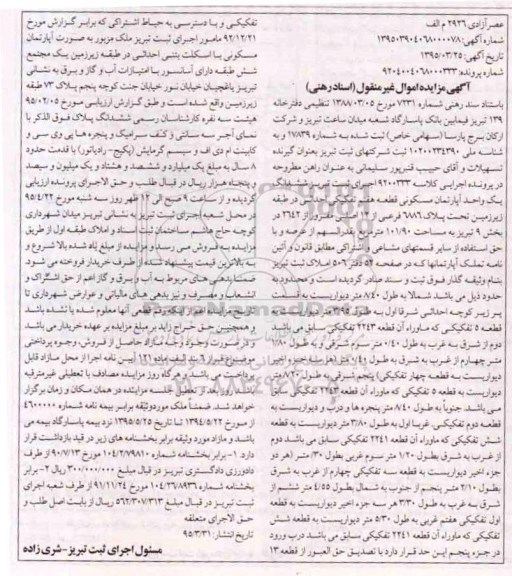 عصر آزادی ۲۹۲۶ م الف
شماره آگهی: ۱۳۹۵۰۳۹۰۴۰۶۸۰۰۰۰۷۸
تاریخ آگهی: ۱۳۹۵/۰۳/۲۵
شماره پرونده: ۹۲۰۴۰۰۴۰۶۸۰۰۰۳۳۳
آگهی مزایده اموال غیرمنقول (اسناد رهنی)
باستناد سند رهنی شماره ۷۲۳۱ مورخ ۱۳۸۸/۰۳/۰۵ تنظیمی دفترخانه
۱۳۹ تبریز فیمابین بانک پاسارگاد شعبه میدان ساعت تبریز و شرکت
ارکان سرج پارسا (سهامی خاص) ثبت شده به شماره ۱۷۸۳۹ و به
شناسه ملی ۱۰۲۰۰۲۳۴۳۹۰ ثبت شرکتهای ثبت تبریز بعنوان گیرنده
تسهیلات و آقای حبیب قنبرپور سلیمانی به عنوان راهن مطروحه
در پرونده اجرایی کلاسه ۹۲۰۰۳۳۳ اجرای ثبت تبریز ششدانگ
یک واحد آپارتمان مسکونی قطعه
زیرزمین تحت پلاک ۶۸۸۶ فرعی از ۱ فرعی مفروز از ۲۳۴۲ در
بخش ۹ تبریز به مساحت ۱۰۱/۹۰ مترمربع بقدرالسهم از عرصه و با
حق استفاده از سایر قسمتهای مشاعی و اشتراکی مطابق قانون و آئین
نامه تملک آپارتمانها که در صفحه ۵۲ دفتر ۵۰۶ املاک ثبت تبریز
بنام وثیقه گذار فوق ثبت و سند صادر گردیده است و محدود به
حدود ذیل می باشد شمالا به طول ۷/۴۰ متر دیواریست به قسمت
پر زیر کوچه احداثی شرقا اول به طول
قطعه ۵ تفکیکی که ماوراء آن قطعه ۲۲۴۳ تفکیکی سابق می باشد
دوم از شرق به غرب به طول ۰/۴۰ متر سوم شرقی به طول ۱/۸۰
متر چهارم از غرب به شرق به طول ۰/۴۰ متر هر سه جزء اخیر
دیواریست به قطعه چهار تفکیکی پنجم شرقی به طول ۸/۲۰ متر
دیواریست به قطعه ۵ تفکیکی که ماوراء آن قطعه ۲۲۴۳ تفکیکی سابق
می باشد جنوباً به طول ۷/۴۰ متر پنجره ها و درب و دیواریست به
قطعه دوم تفکیکی، غربا اول به طول ۳/۸۰ متر دیواریست به قطعه
شش تفکیکی که ماوراء آن قطعه ۲۲۴۱ تفکیکی سابق می باشد دوم
از غرب به شرق بطول ۱/۲۰ متر سوم غربی بطول ۳۰/ متر (هر دو
جزء اخیر دیواریست به قطعه سه تفکیکی چهارم از غرب به شرق
بطول ۲/۱۰ متر پنجم از جنوب به شمال بطول ۴/۵۵ متر ششم از
شرق به غرب به طول ۳/۳۰ هر سه جزء اخیر دیواریست به قطعه
اول تفکیکی هفتم غربی به طول ۵/۳۰ متر دیواریست به قطعه شش
تفکیکی که ماوراء آن قطعه ۲۲۴۱ تفکیکی سابق می باشد درب ورود
در جزء پنجم این حد قرار دارد با تصدیق حق العبور از قطعه ۱۳
تفکیکی و با دسترسی به حیاط اشتراکی که برابر گزارش مورخ
۹۲/۱۲/۲۱ مامور اجرای ثبت تبریز ملک مزبور به صورت آپارتمان
مسکونی با اسکلت بتنی احداثی در طبقه زیرزمین یک مجتمع
شش طبقه دارای آسانسور با امتیازات آب و گاز و برق به نشانی
تبریز باغچبان خیابان نور خیابان جنت کوچه پنجم پلاک ۷۳ طبقه
زیرزمین واقع شده است و طبق گزارش ارزیابی مورخ ۹۵/۰۲/۰۵
هیئت سه نفره کارشناسان رسمی ششدانگ پلاک فوق الذکر با
نمای آجر سه سانتی و کف سرامیک و پنجره ها پی وی سی و
کابینت ام دی اف و سیستم گرمایش (پکیج- رادیاتور) با قدمت حدود
۸ سال به مبلغ یک میلیارد و ششصد و هشتاد و یک میلیون و سیصد
و پنجاه هزار ریال در قبال طلب و حق الاجرای پرونده ارزیابی
گردیده و از ساعت ۹ صبح الی ۱۲ ظهر روز سه شنبه مورخ ۹۵/۴/۲۲
در محل شعبه اجرای ثبت تبریز به نشانی تبریز میدان شهرداری
کوچه حاج هاشم ساختمان ثبت اسناد و املاک طبقه اول از طریق
مزایده به فروش می رسد و مزایده از مبلغ یاد شده بالا شروع و
به بالاترین قیمت پیشنهاد شده از طرف خریدار فروخته می شود
ضمنا بدهی های مربوط به آب و برق و گاز اعم از حق اشتراک و
انشعاب و مصرف و نیز بدهی های مالیاتی و عوارض شهرداری تا
رقم قطعی آنها معلوم شده یا نشده باشد
و همچنین حق حراج زاید بر مبلغ مزایده بر عهده خریدار می باشد
و در صورت وجود وجه مازاد حاصل از فروش، وجوه پرداختی
موضوع بند یک ماده ۱۲۱ آیین نامه اجرا از محل مازاد قابل
پرداخت می باشد و هرگاه روز مزایده مصادف با تعطیلی غیرمترقبه
باشد، روز بعد از تعطیل جلسه مزایده در همان مکان و زمان برگزار
خواهد شد. ضمناً ملک مورد وثیقه برابر بیمه نامه شماره ۴۶۰۰۰۰۰
از مورخ ۱۳۹۴/۵/۲۲ تا تاریخ ۱۳۹۵/۵/۲۵ نزد بیمه پاسارگاد بیمه می
باشد و مازاد مورد وثیقه برابر بخشنامه های زیر در قید بازداشت قرار
دارد ۱- برابر بخشنامه شماره ۱۰۴/۲/۷۹۸۱۰ مورخ ۹۰/۷/۱۳ از طرف
دادورزی دادگستری تبریز در قبال مبلغ ۳۰۰/۰۰۰/۰۰۰ ریال ۲- برابر
بخشنامه شماره ۱۰۴/۲۶/۱۸۹۳۶ مورخ ۹۱/۱۱/۲۴ از طرف شعبه اجرای
ثبت تبریز در قبال مبلغ ۵۶۲/۳۰۷/۳۱۳ ریال از بابت اصل طلب و
حق الاجرای متعلقه
تاریخ انتشار: ۹۵/۳/۳۱
مسئول اجرای ثبت تبریز-شری زاده